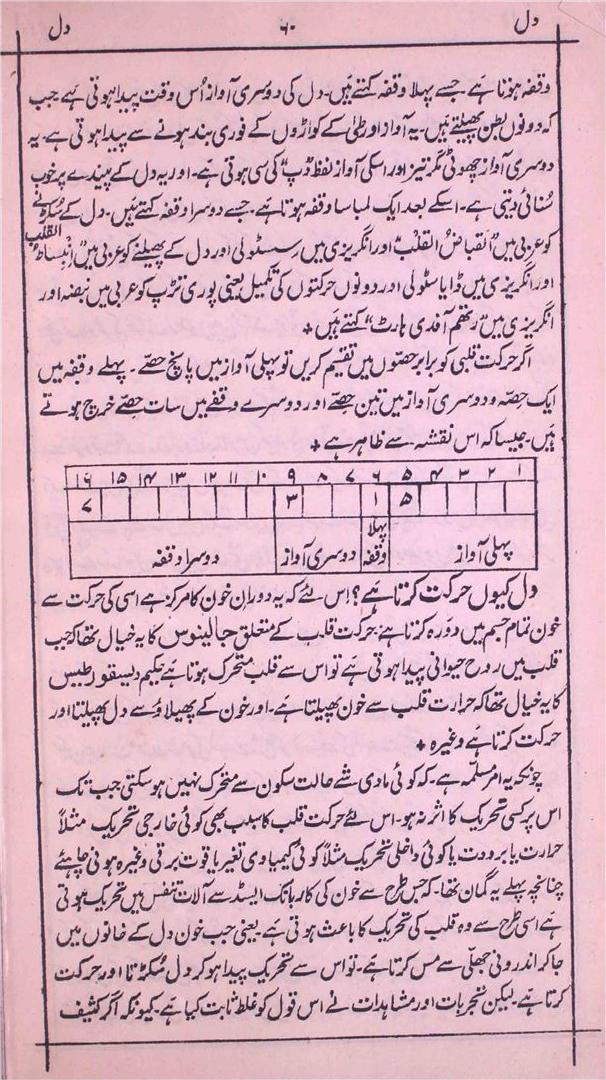 دل ۶۰ دل
وقفہ ہوتا ہے۔ جسے پہلا وقفہ کہتے ہیں۔ دل کی دوسری آواز اُس وقت پیدا ہوتی ہے۔ جب
کہ دونوں بطن پھیلتے ہیں۔ یہ آواز اورطیٰ کے کواڑوں کے فوری بند ہونے سے پیدا ہوتی ہے۔ یہ
دوسری آواز چھوٹی مگر تیز اور اسکی آواز لفظ ڈپ" کی سی ہوتی ہے۔ اور یہ دل کے پیندے پر خوب
سُنائی دیتی ہے۔ اسکے بعد ایک لمبا سا وقفہ ہوتا ہے۔ جسے دوسرا وقفہ کہتے ہیں۔ دل کے سُکڑنے
کو عربی میں "انقباضُ القلب" اور انگریزی میں سِسٹولی اور دل کے پھیلنے کو عربی میں "اِنْبِساطُ القلب
اور انگریزی میں ڈایاسٹولی اور دونوں حرکتوں کی تکمیل یعنی پوری تڑپ کو عربی میں نبضہ اور
انگریزی میں "رتھم آف دی ہارٹ" کہتے ہیں +
اگر حرکت قلبی کو برابر حصّوں میں تقسیم کریں تو پہلی آواز میں پانچ حصّے۔ پہلے وقفہ میں
ایک حصّہ و دوسری آواز میں تین حصّے اور دوسرے وقفے میں سات حصّے خرچ ہوتے
ہیں۔ جیسا کہ اس نقشہ سے ظاہر ہے +
۱ ۲ ۳ ۴ ۵ ۶ ۷ ۸ ۹ ۱۰ ۱۱ ۱۲ ۱۳ ۱۴ ۱۵ ۱۶
۵ ۱ ۳ ۷
پہلی آواز پہلا وقفہ دوسری آواز دوسرا وقفہ
دل کیوں حرکت کرتا ہے؟ اِس لئے کہ یہ دورانِ خون کا مرکز ہے اسی کی حرکت سے
خون تمام جسم میں دَورہ کرتا ہے۔ حرکت قلب کے متعلق جالینوس کا یہ خیال تھا کہ جب
قلب میں روح حیوانی پیدا ہوتی ہے تو اس سے قلب متحرک ہوتا ہے۔ حکیم دیسقوریطیس
کا یہ خیال تھا کہ حرارت قلب سے خون پھیلتا ہے۔ اور خون کے پھیلاؤ سے دل پھیلتا اور
حرکت کرتا ہے وغیرہ +
چونکہ یہ امر مسلّمہ ہے۔ کہ کوئی مادی شے حالت سکون سے متحرک نہیں ہو سکتی جب تک
اس پر کسی تحریک کا اثر نہ ہو۔ اس لئے حرکت قلب کا سبب بھی کوئی خارجی تحریک مثلاً
حرارت یا برودت یا کوئی داخلی تحریک مثلاً کوئی کیمیاوی تغیر یا قوت برقی وغیرہ ہونی چاہئے
چنانچہ پہلے یہ گمان تھا۔ کہ جس طرح سے خون کی کاربانک ایسڈ سے آلات تنفس میں تحریک ہوتی
ہے اسی طرح سے وہ قلب کی تحریک کا باعث ہوتی ہے۔ یعنی جب خون دل کے خانوں میں
جا کر اندرونی جھلّی سے مس کرتا ہے۔ تو اس سے تحریک پیدا ہو کر دل سُکڑتا اور حرکت
کرتا ہے۔ لیکن تجربات اور مشاہدات نے اس قول کو غلط ثابت کیا ہے۔ کیونکہ اگر کثیف